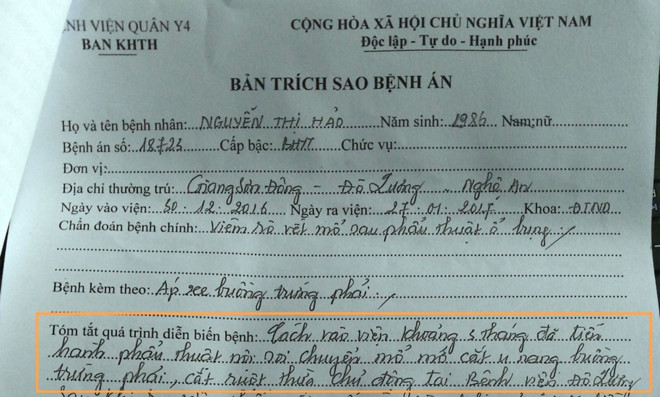 ỆNH VIỆN QUÂN Y4
BAN KHTH
CỘNG HÒA XÃ HỘI CHỦ NGHĨA VIỆT NAM
Độc lập - Tự do - Hạnh phúc
BẢN TRÍCH SAO BỆNH ÁN
Họ và tên bệnh nhân: NGUYỄN THỊ HẢO Năm sinh: 1986 Nam; nữ
Bệnh án số: 18723 Cấp bậc: BHYT Chức vụ:
Đơn vị:
Địa chỉ thường trú: Giang Sơn Đông - Đô Lương - Nghệ An
Ngày vào viện: 30.12.2016 Ngày ra viện: 27.01.2017 Khoa:
Chẩn đoán bệnh chính: Viêm rò vết mổ sau phẫu thuật ổ bụng /
Bệnh kèm theo: Áp xe buồng trứng phải /
Tóm tắt quá trình diễn biến bệnh: Cách vào viện khoảng 5 tháng đã tiến
hành phẫu thuật nội soi chuyển mổ mở cắt u nang buồng
trứng phải, cắt ruột thừa chủ động tại Bệnh viện Đô Lương